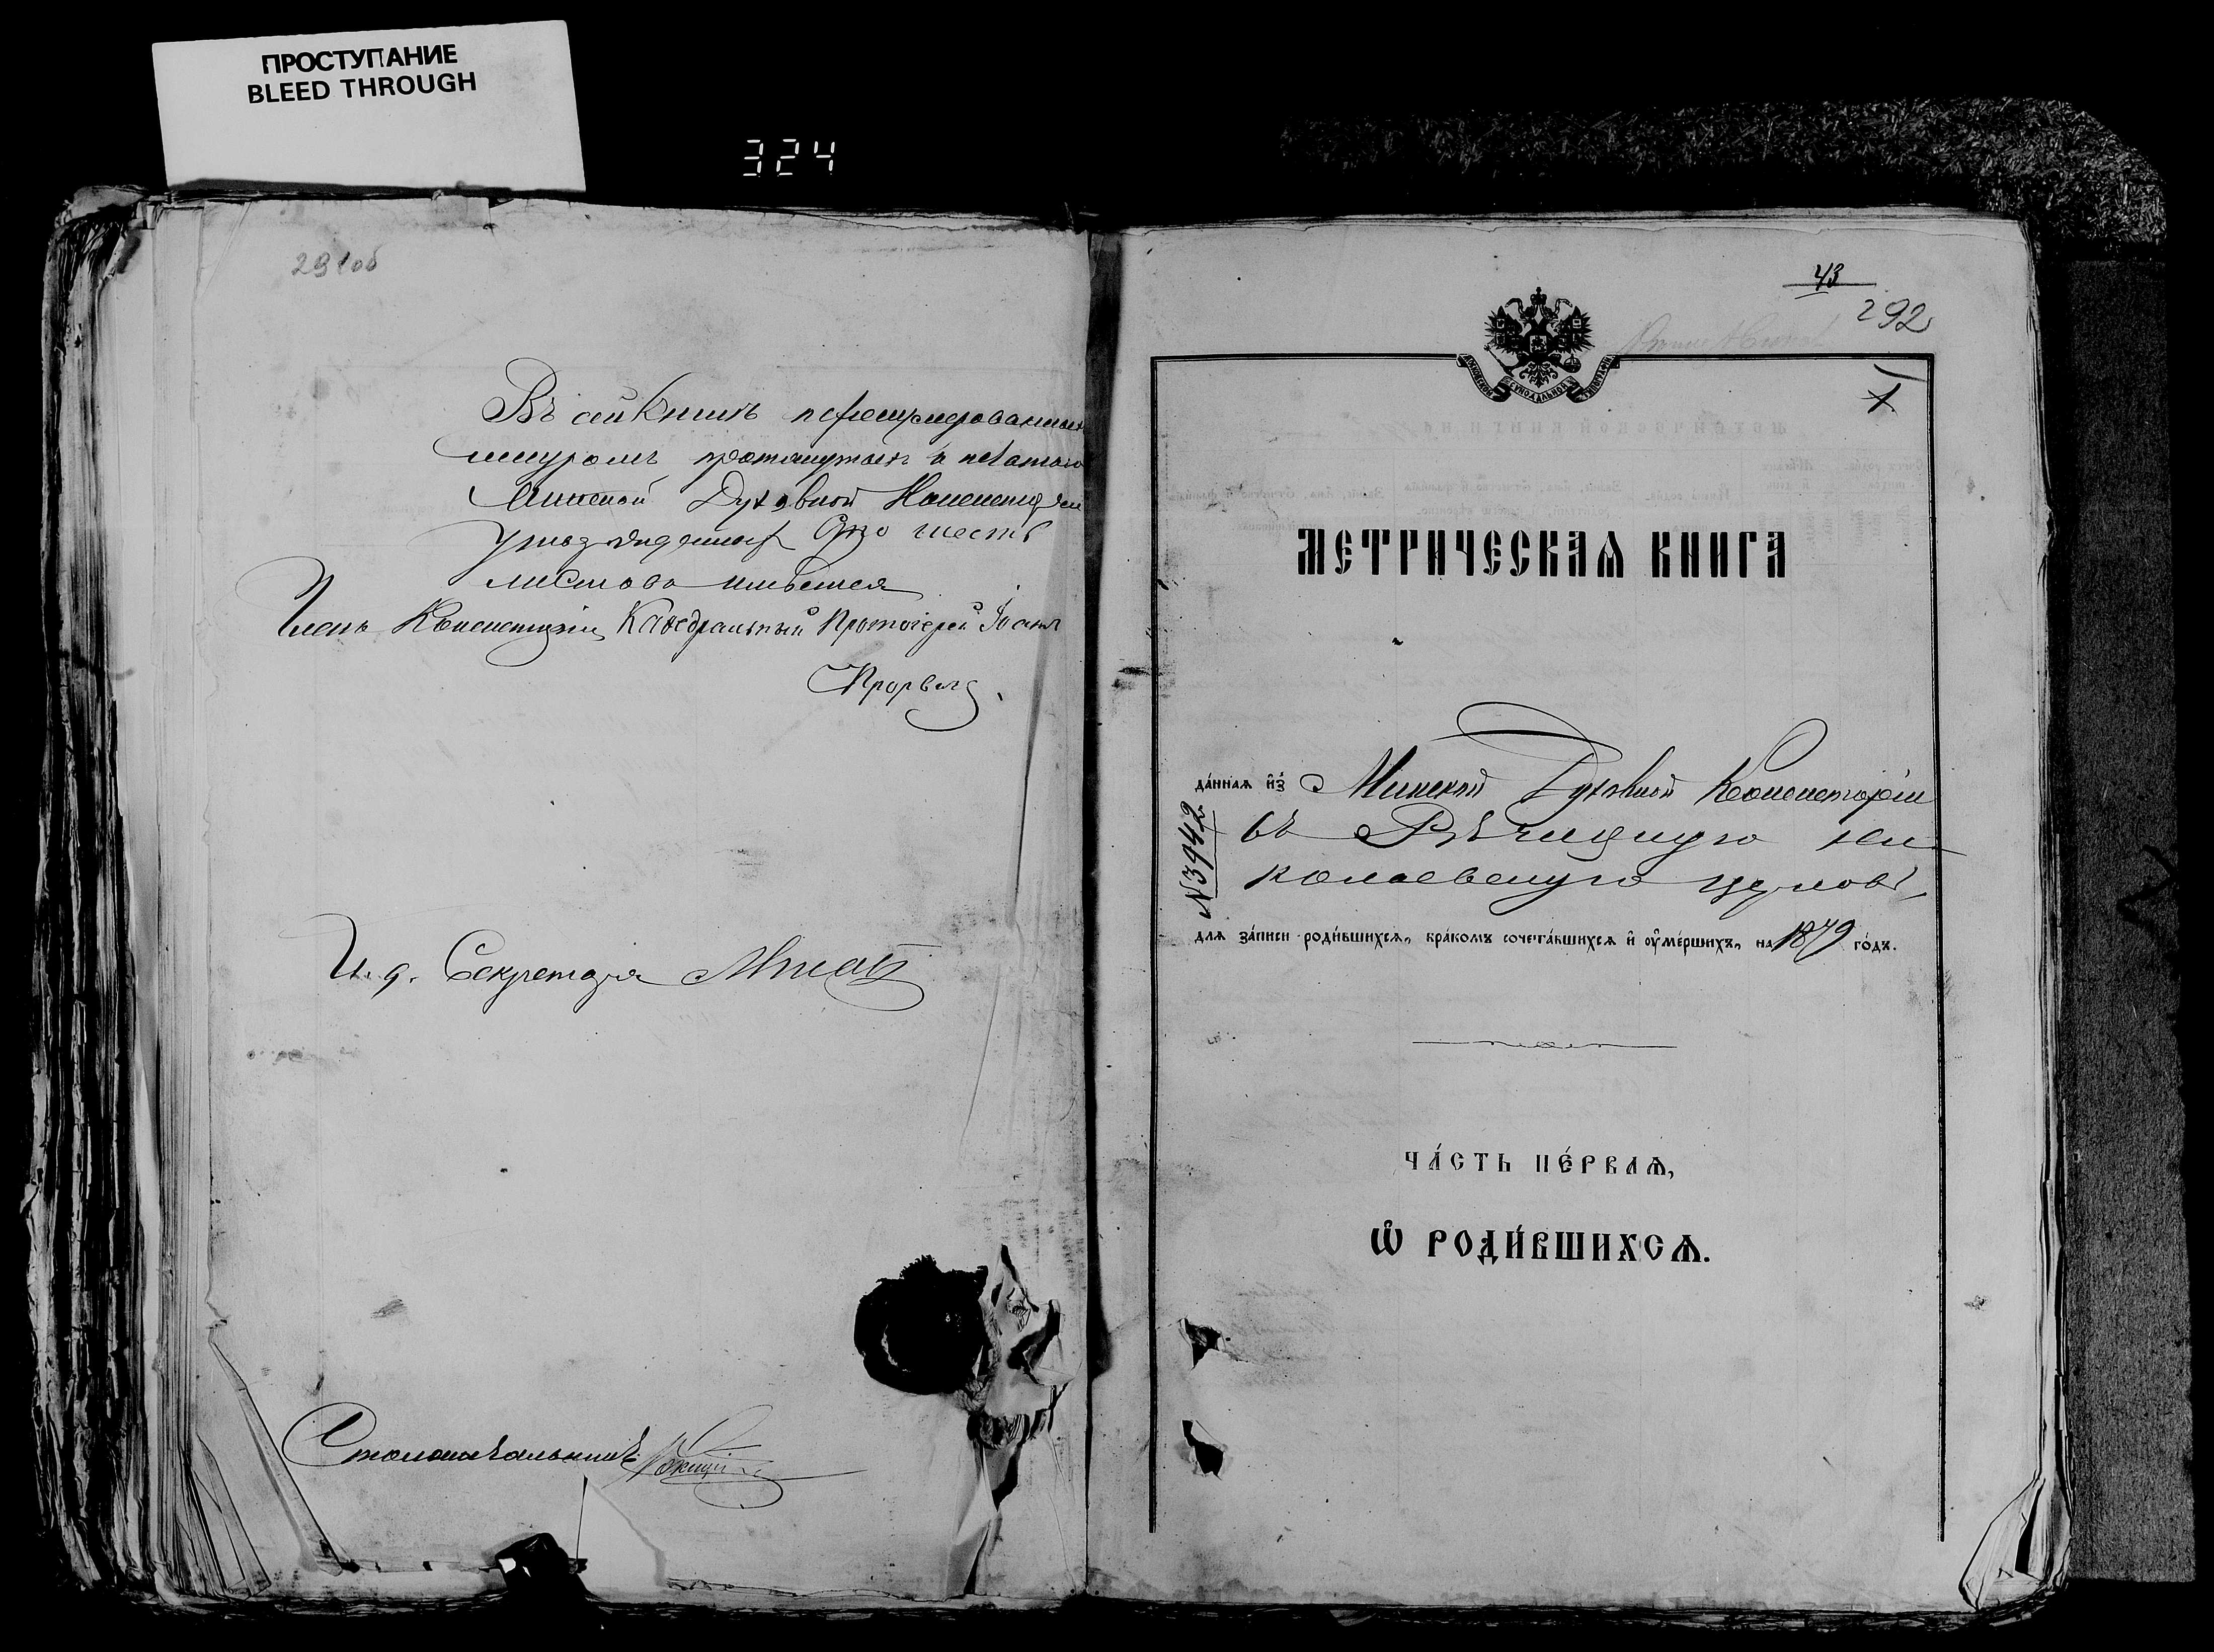 ПРОСТУПАНИЕ
BLEED THROUGH
324
291об
Въ сей книгѣ перенумерованныхъ
шнуромъ протянутыхъ и печатью
Минской Духовной Консисторіи
утвержденныхъ сто шесть
листовъ имѣется
Членъ Консисторіи Каѳедральный Протоіерей Іоаннъ
И. д. Секретаря
Столоначальникъ
43
292
1
МЕТРИЧЕСКАѦ КНИГА
да́ннаѧ и҆з̾ Минской Духовной Консисторіи
въ Рѣчицкую Ни-
колаевскую церковь
№ 3942
для за́писи роди́вшихсѧ, бра́комъ сочета́вшихсѧ и҆ оу҆ме́ршихъ, на 1879 го́дъ.
ЧА́СТЬ ПЕ́РВАѦ,
Ѡ҆ РОДИ́ВШИХСѦ.